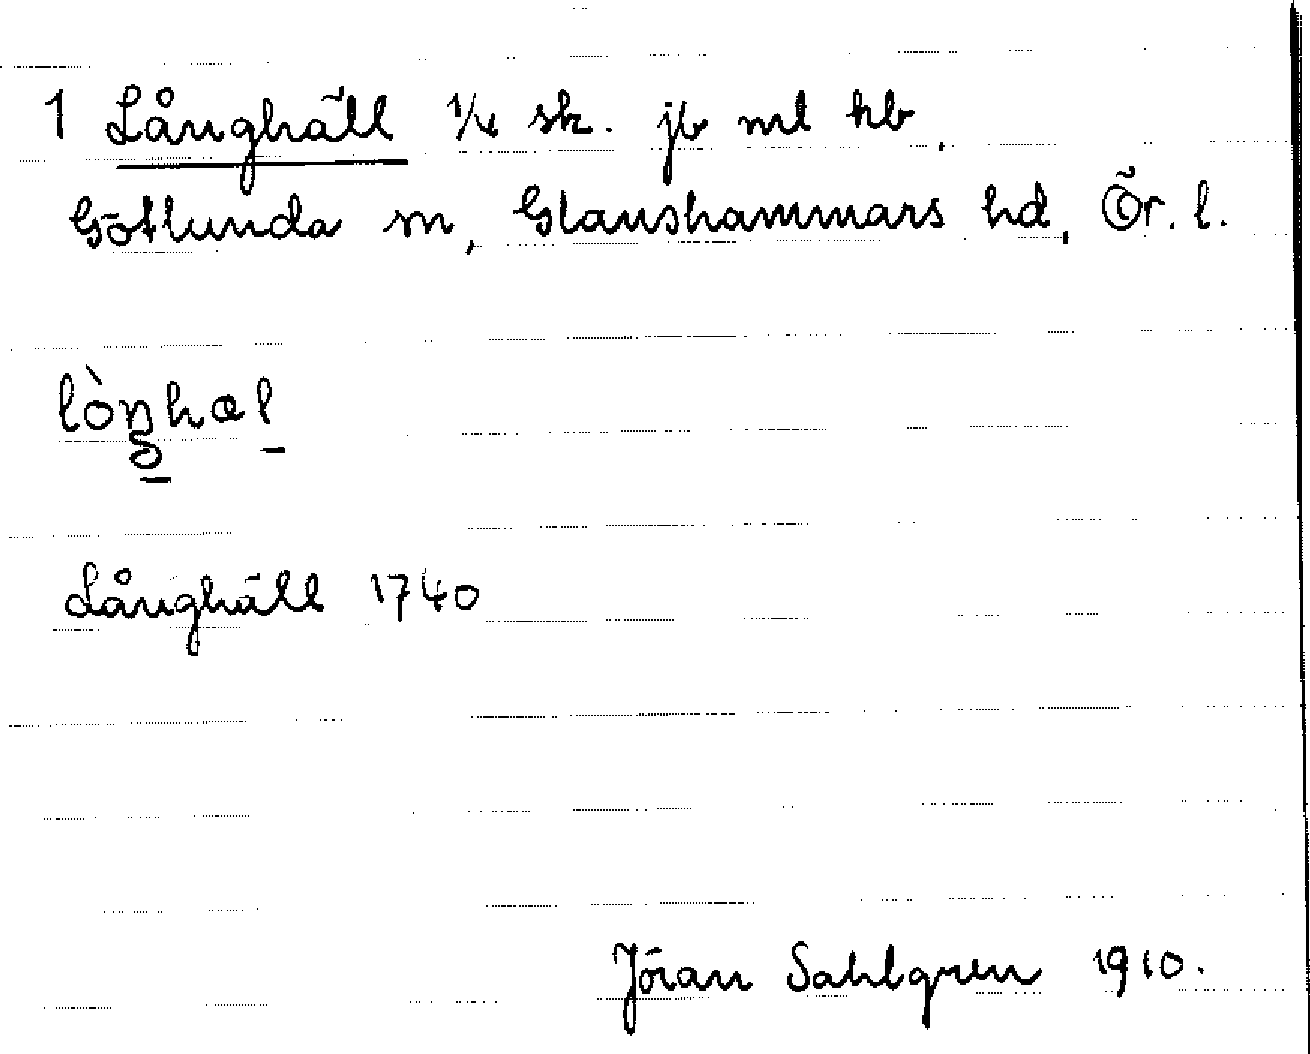 1 Långhäll 1/4 sk. jb ml kb,
Götlunda sn, Glanshammars hd, Ör. l.
lòŋhæl
Långhäll 1740
Jöran Sahlgren 1910.